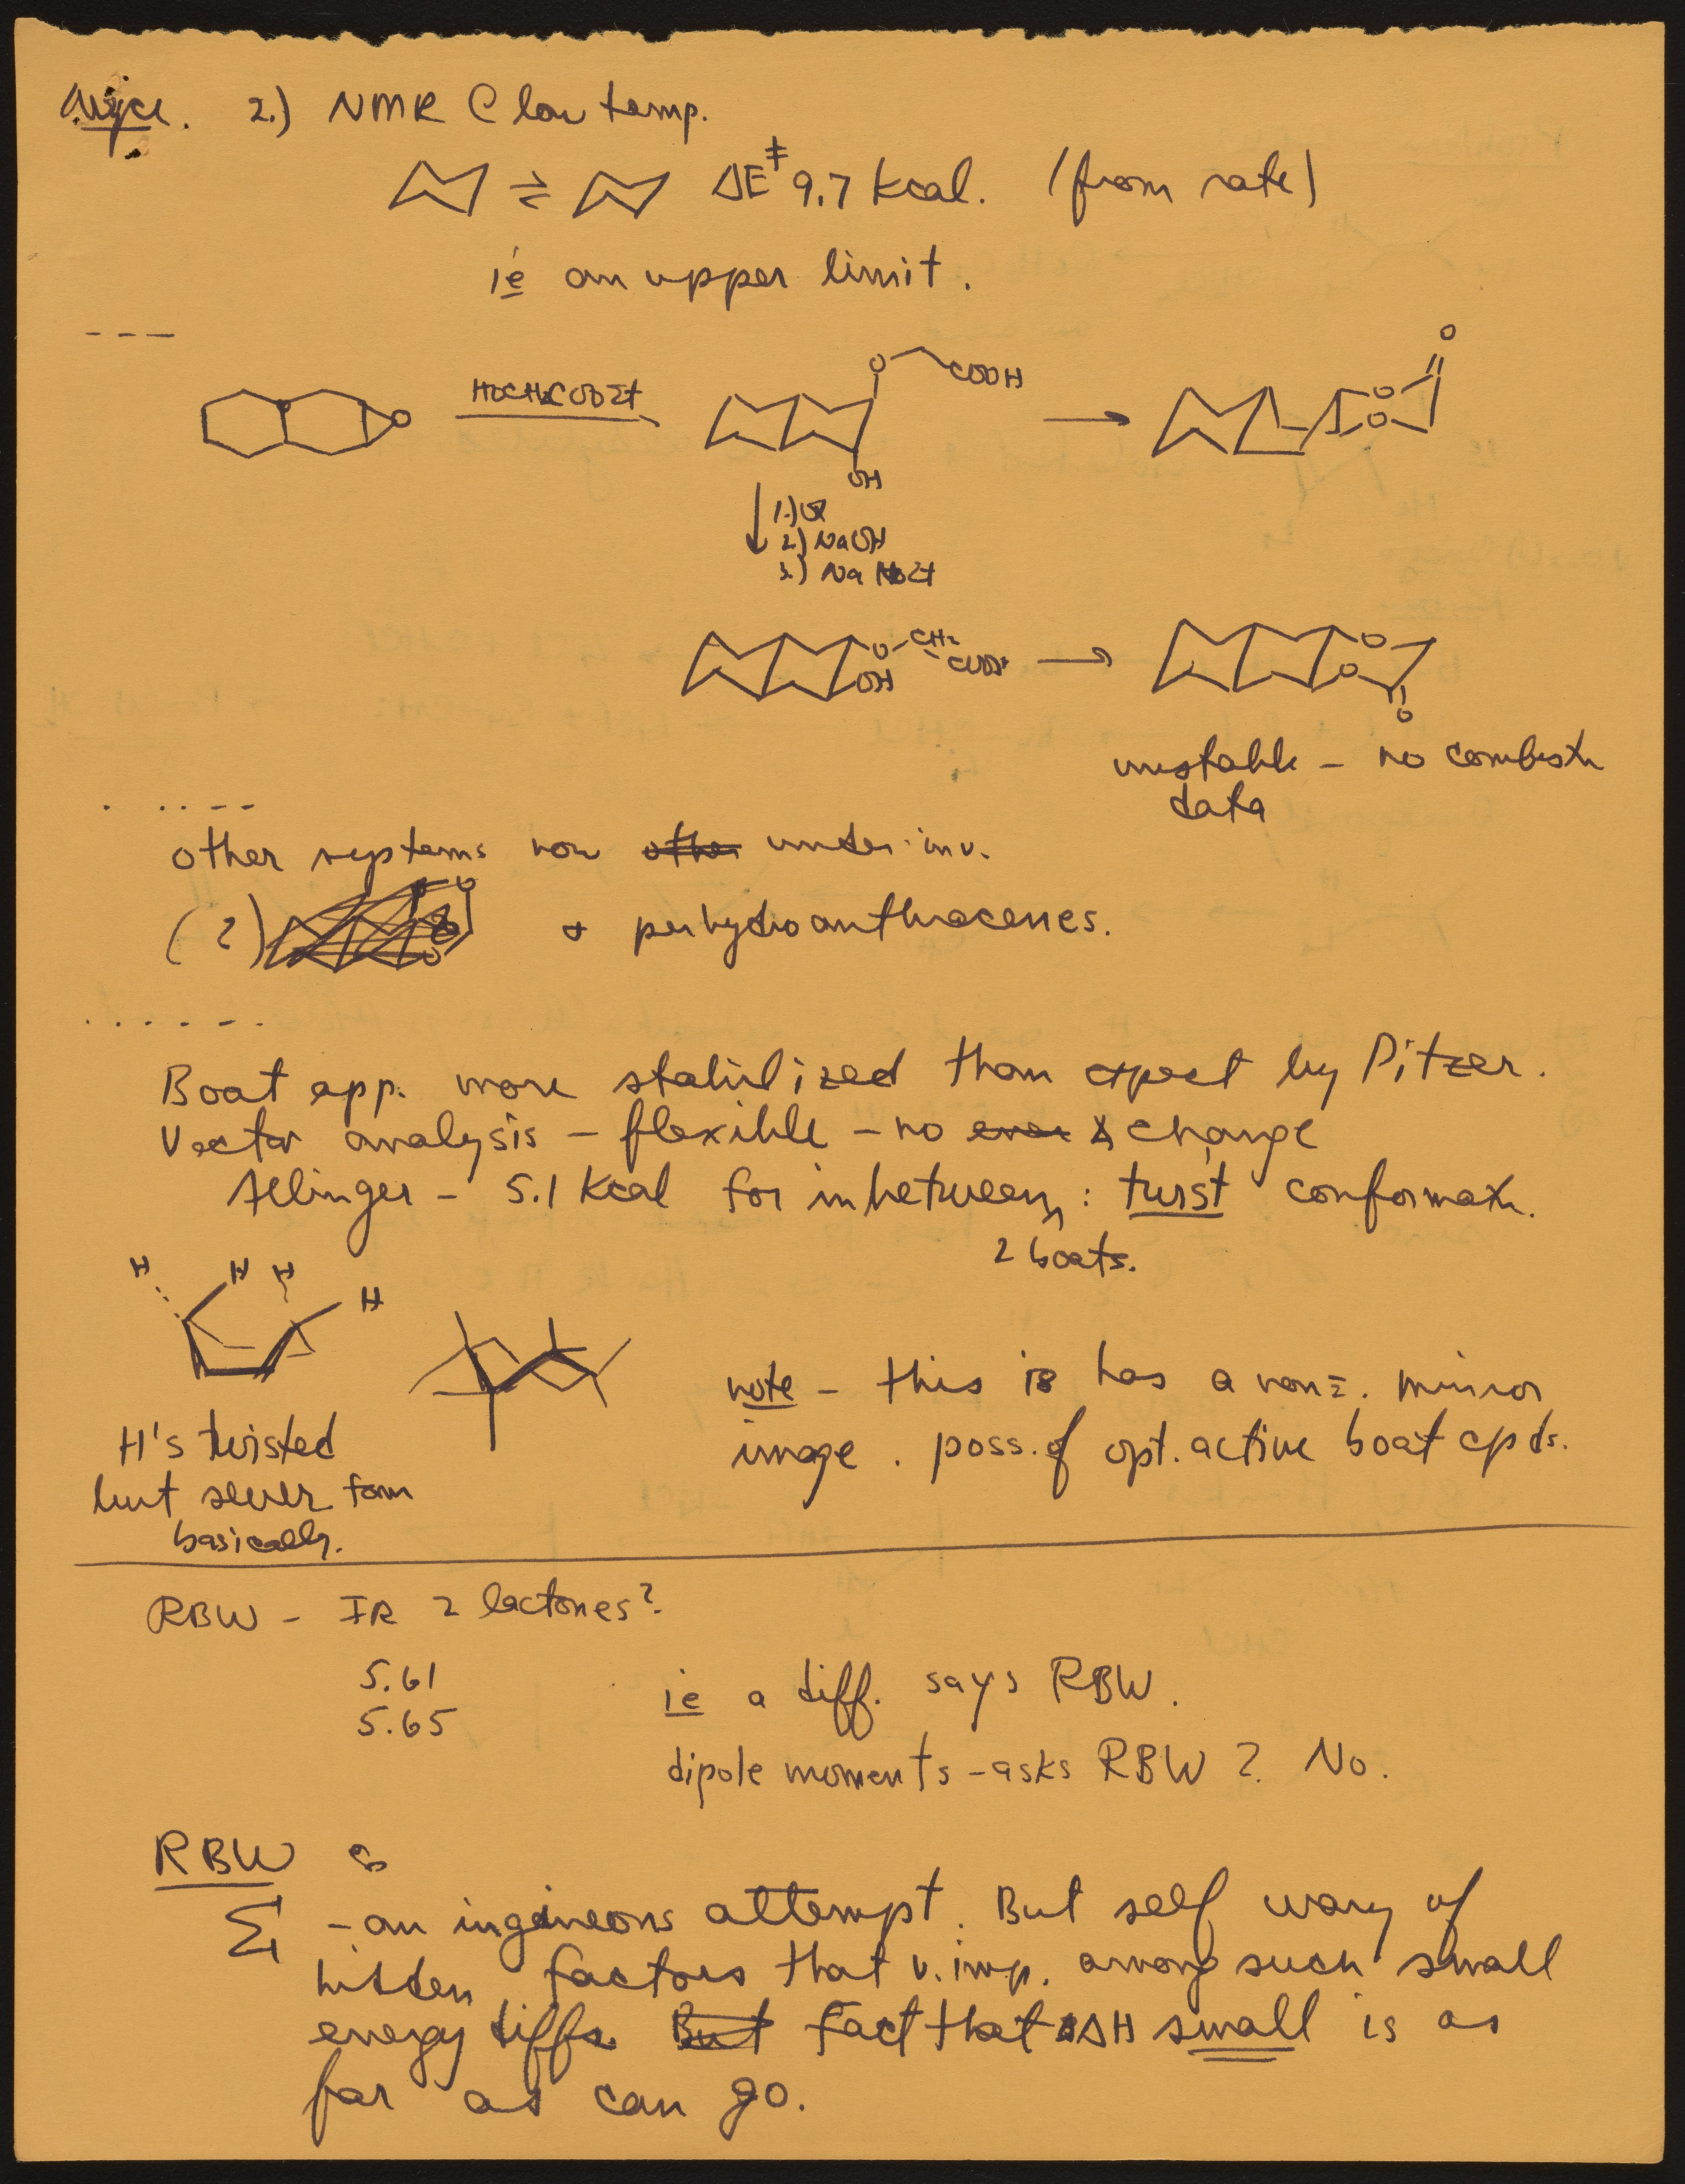 2.) NMR @ low temp.
⇌ ΔE‡ 9.7 kcal. (from rate)
ie an upper limit.
---
O
HOCH2COOEt
O COOH
OH
O
O
O
1.) Ox
2.) NaOH
3.) Na
O CH2
OH COOH
O
O
O
unstable - no combustn
data
other systems now other under inv.
(2) & perhydroanthracenes.
Boat app. more stabilized than expect by Pitzer.
Vector analysis - flexible - no ∡ change
Allinger - 5.1 kcal for inbetween : twist conformatn.
2 boats.
H H H H
note - this is has a non ≡. mirror
image . poss. of opt. active boat cpds.
H's twisted
but sever form
basically.
RBW - IR 2 lactones?
5.61
5.65
ie a diff. says RBW.
dipole moments - asks RBW ? No.
RBW
Σ - an ingeneous attempt. But self wary of
hidden factors that v. imp. among such small
energy diffs. But Fact that ΔH small is as
far as can go.